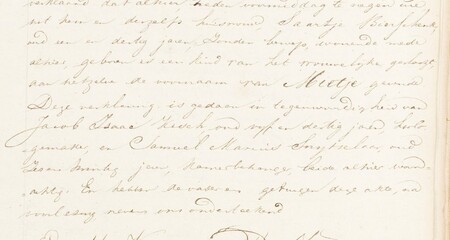 verklaard dat alhier heden voormiddag te negen ure,
uit hem en deszelfs huisvrouw Saartje
oud een en dertig jaren, zonder beroep, wonende mede
alhier, geboren is een kind van het vrouwelijke geslacht,
aan hetzelve de voornaam van Mietje gevende
Deze verklaring is gedaan in tegenwoordigheid van
Jacob Isaac oud vyf en dertig jaren, horlo-
gemaker, en Samuel Marcus oud
jaren, beide alhier woon-
achtig. En hebben de vader en getuigen deze akte, na
voorlezing nevens ons onderteekend